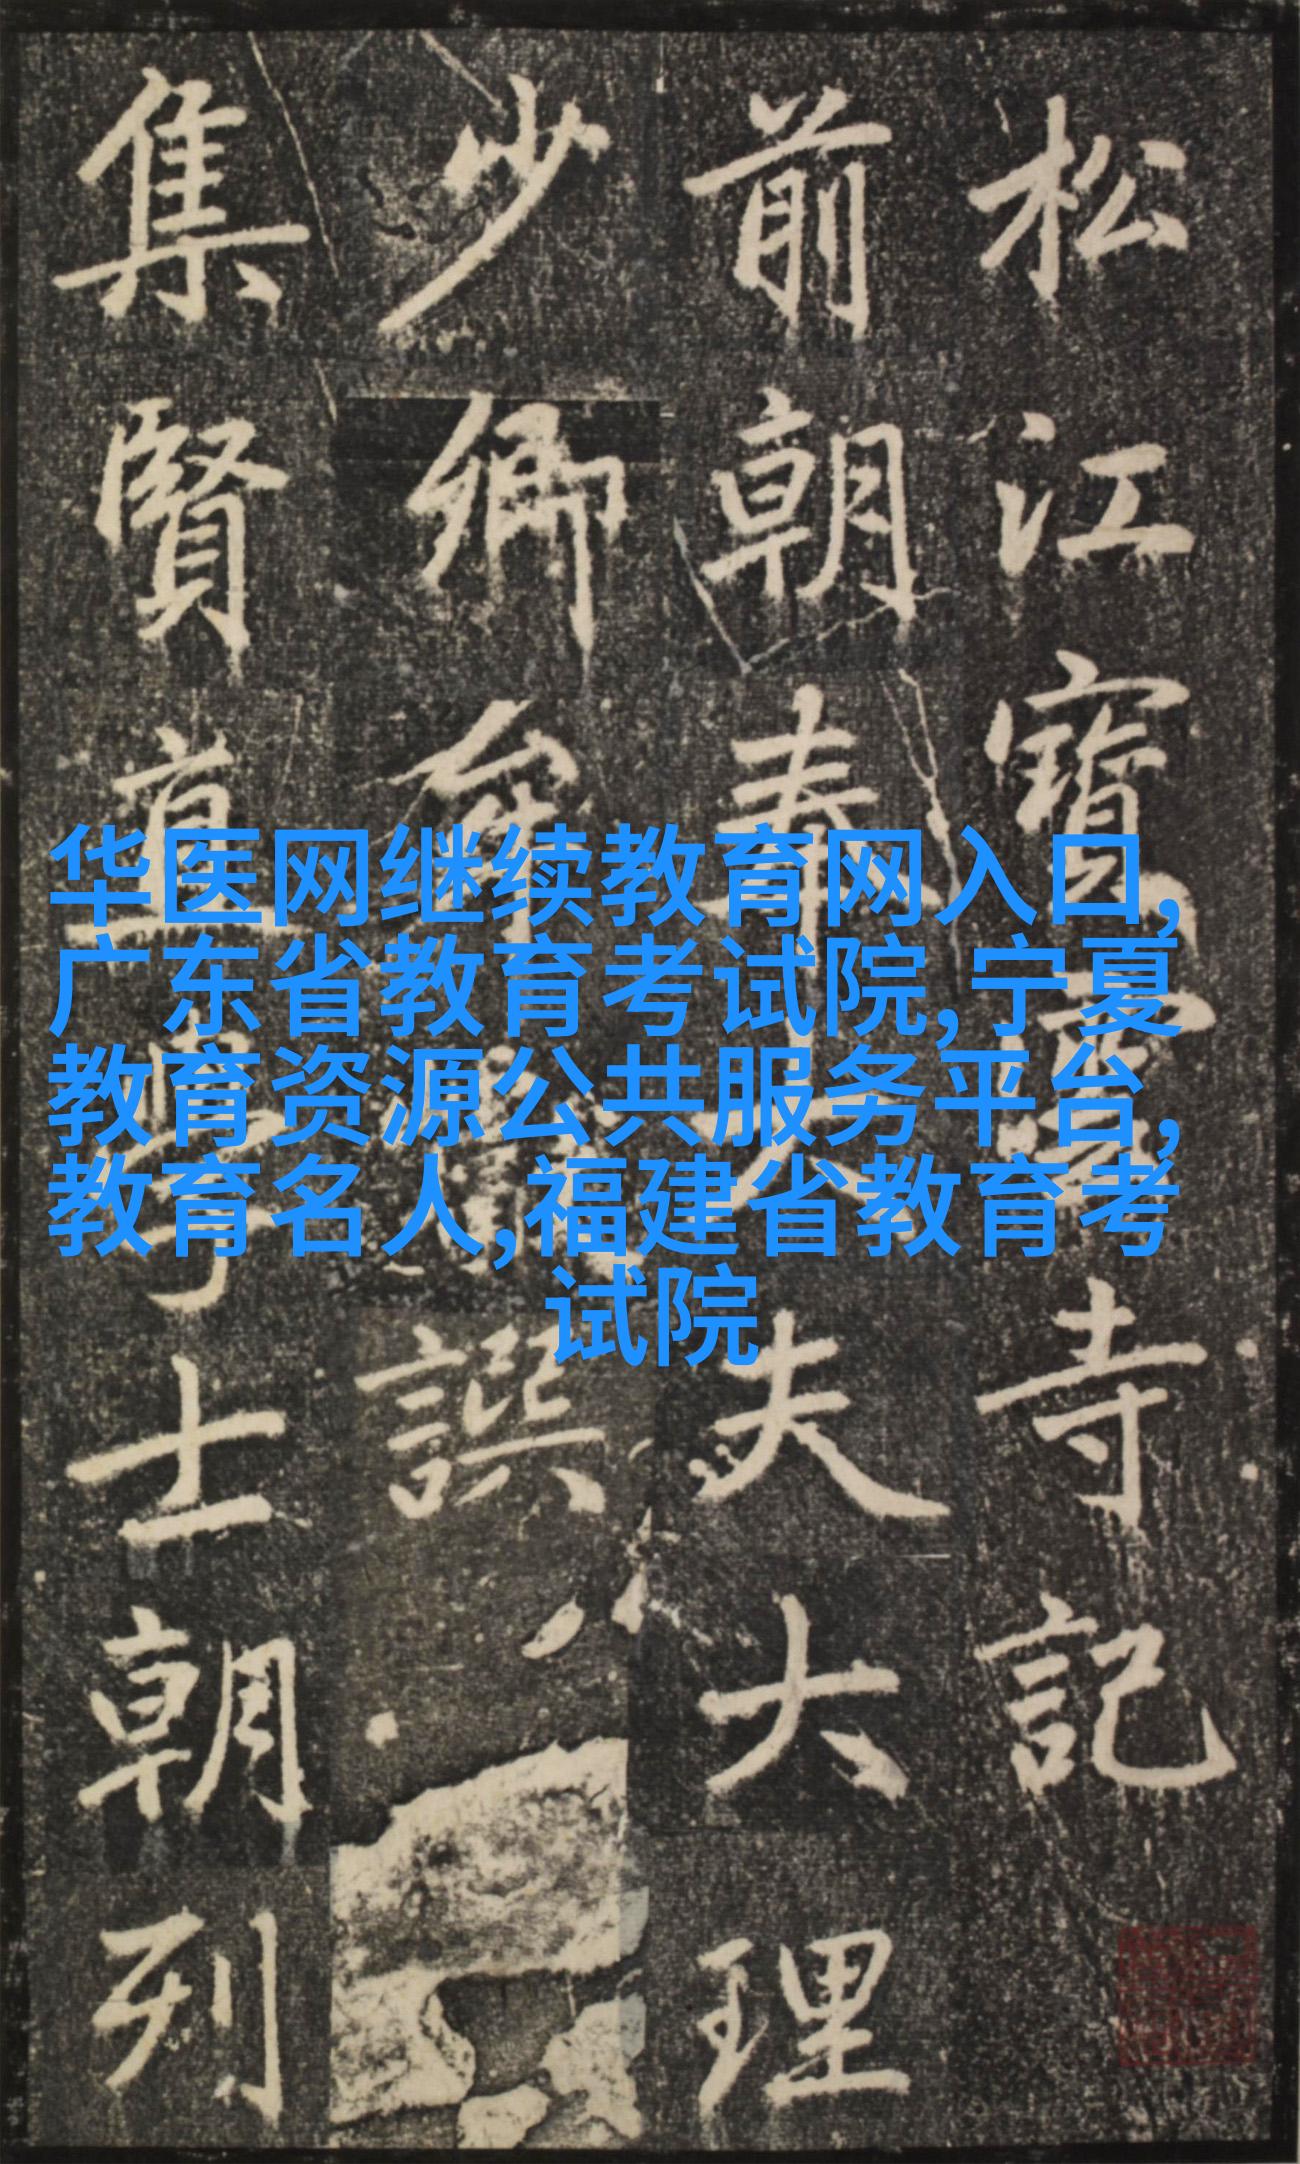 松江寶雲寺記
前朝奉大夫大理
少卿牟巘譔
集賢直學士朝列
华医网继续教育网入口,
广东省教育考试院,宁夏
教育资源公共服务平台,
教育名人,福建省教育考
试院